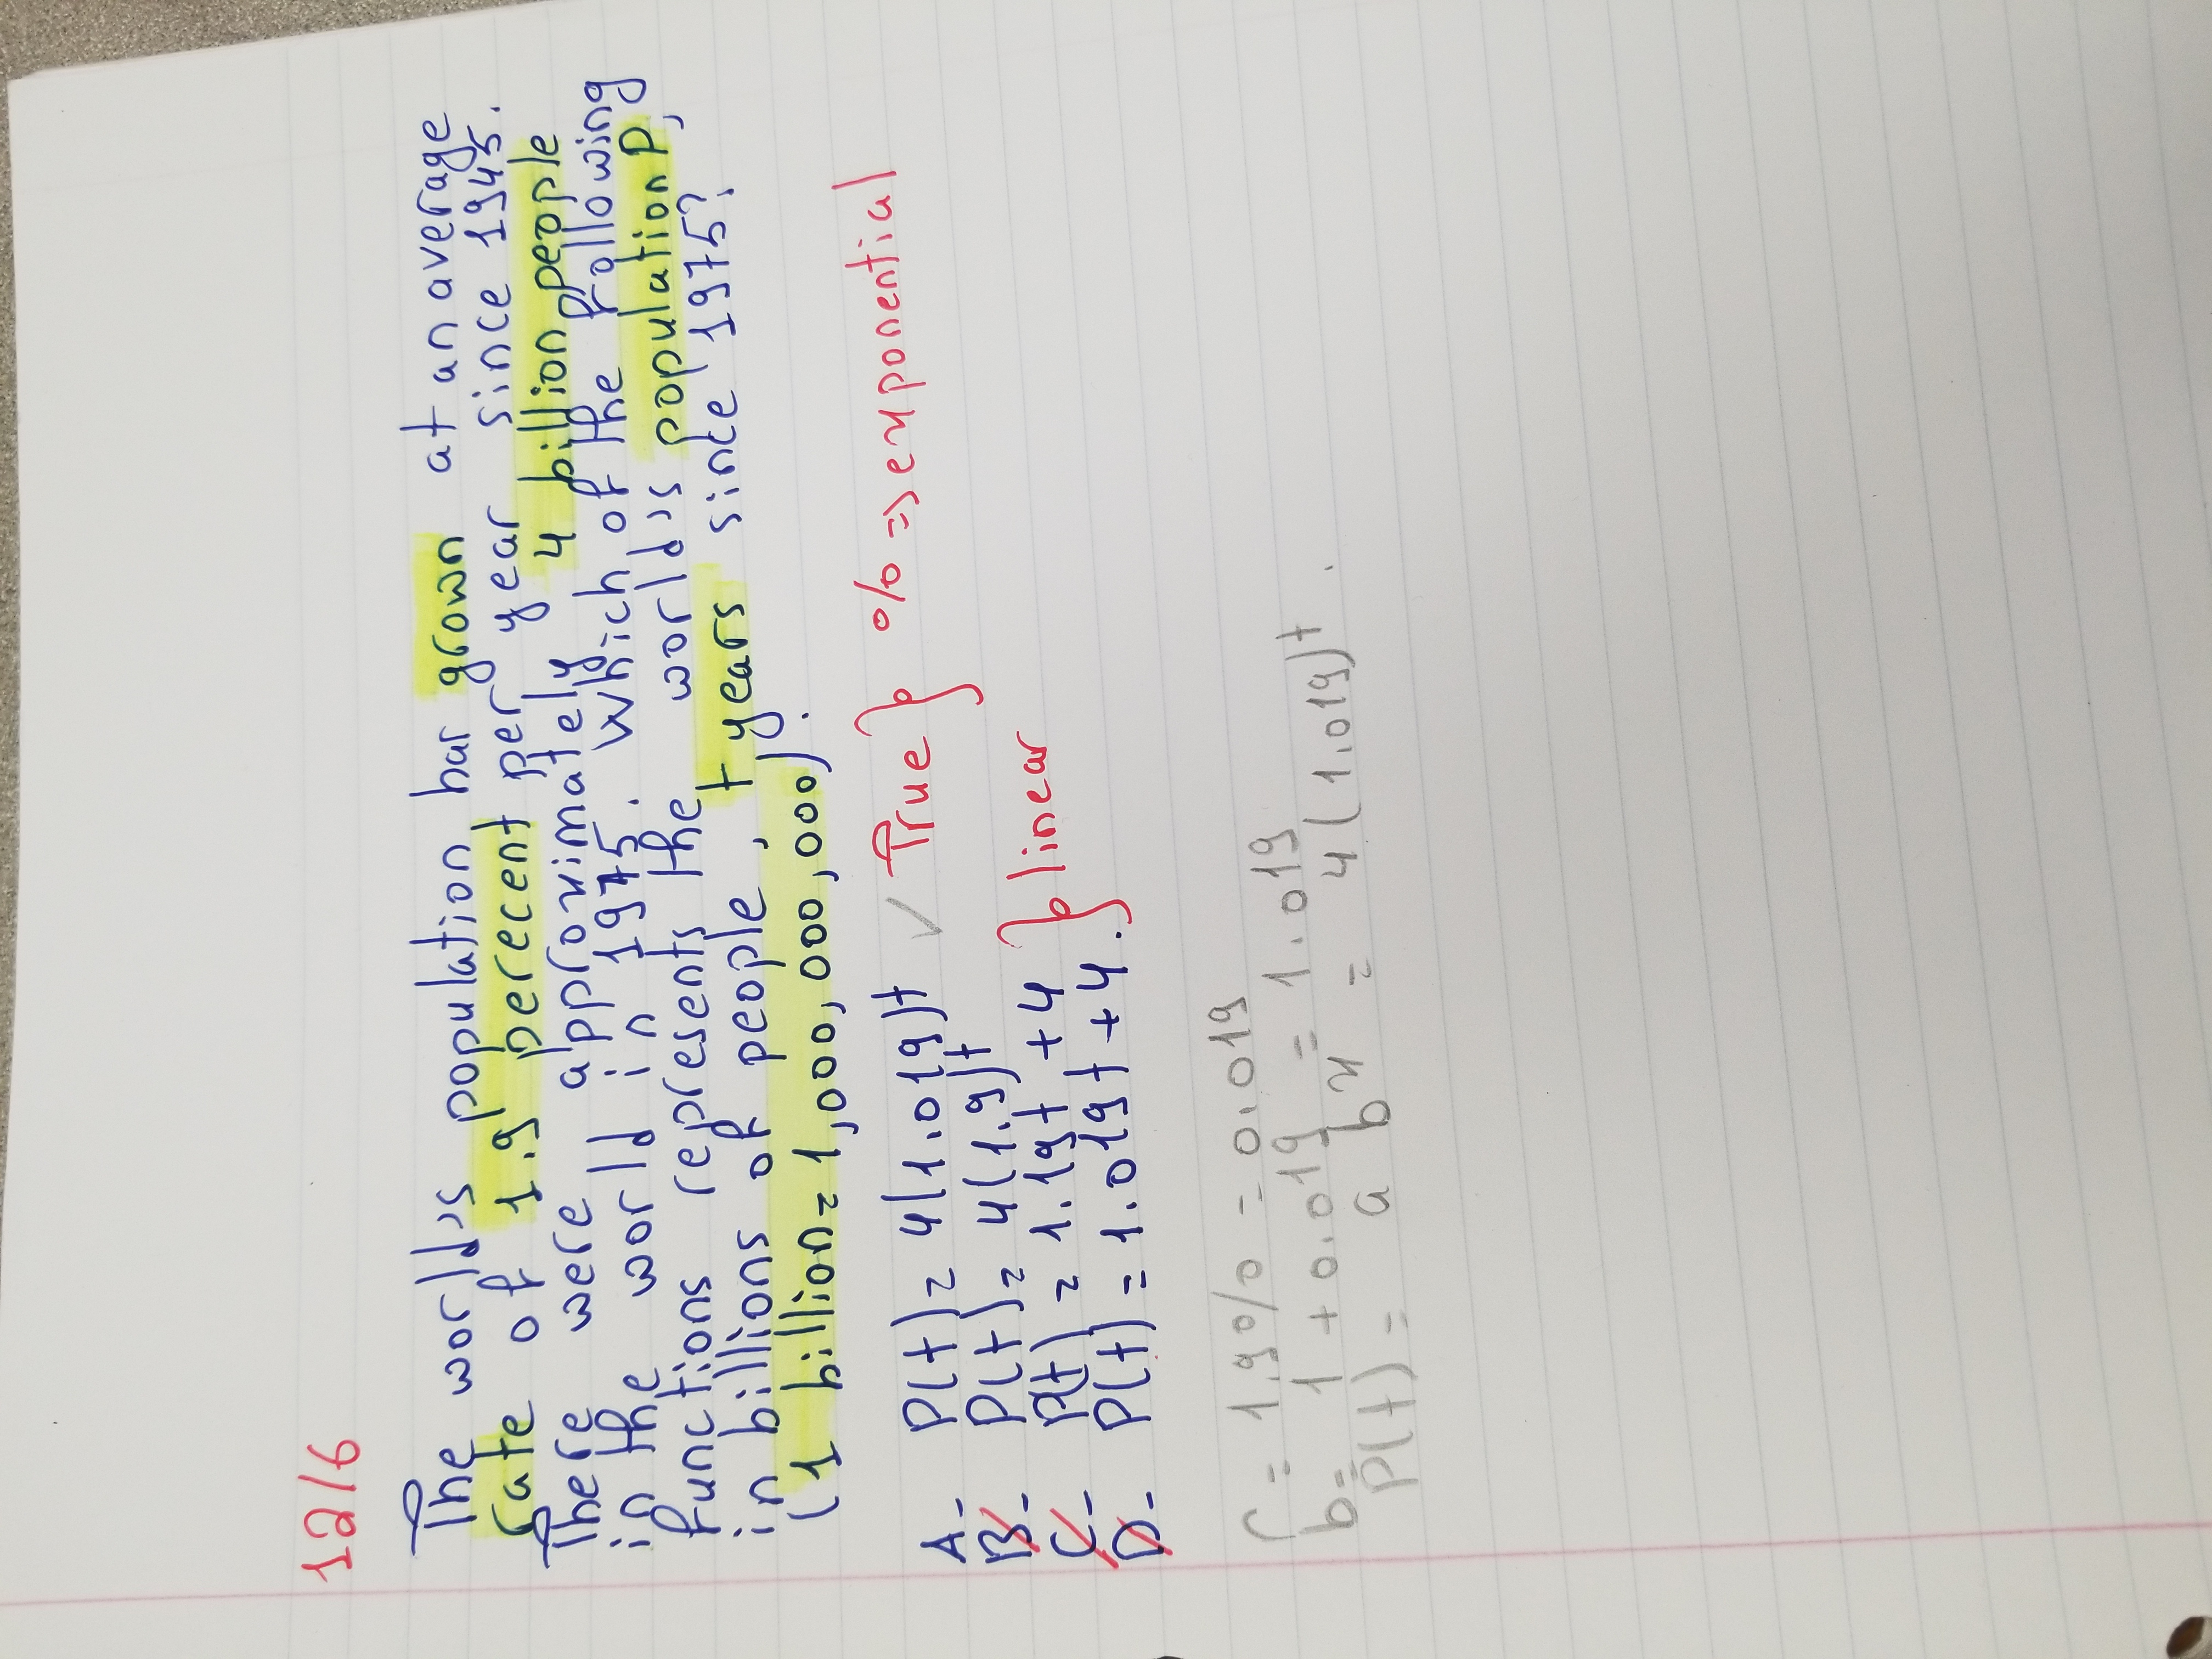 12/6
The world's population har grown at an average
rate of 1.9 perecent per year since 1945.
There were approximately 4 billion people
in the world in 1975. Which of the following
functions represents the world's population P,
in billions of people, t years since 1975?
(1 billion = 1,000,000,000).
A- P(t) = 4(1.019)t ✓ True } % => exponential
B- P(t) = 4(1.9)t
C- P(t) = 1.19t + 4 } linear
D- P(t) = 1.019t + 4.
r = 1.9% = 0.019
b = 1 + 0.019 = 1.019
P(t) = a bx = 4(1.019)t.